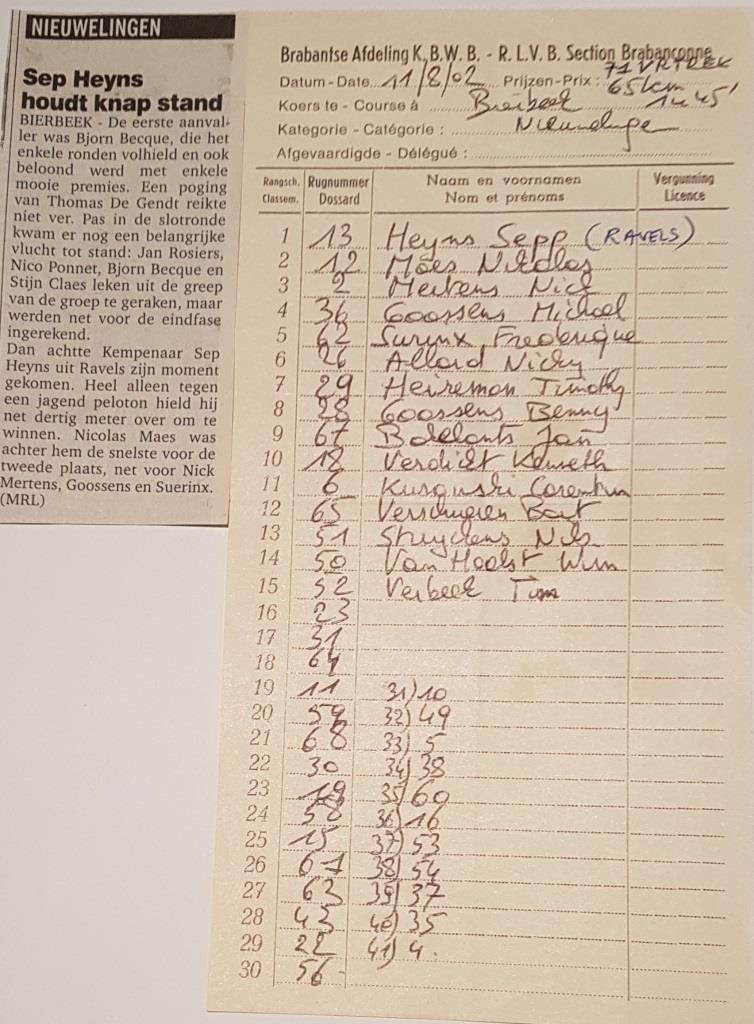 NIEUWELINGEN
Sep Heyns
houdt knap stand
BIERBEEK - De eerste aanval-
ler was Bjorn Becque, die het
enkele ronden volhield en ook
beloond werd met enkele
mooie premies. Een poging
van Thomas De Gendt reikte
niet ver. Pas in de slotronde
kwam er nog een belangrijke
vlucht tot stand: Jan Rosiers,
Nico Ponnet, Bjorn Becque en
Stijn Claes leken uit de greep
van de groep te geraken, maar
werden net voor de eindfase
ingerekend.
Dan achtte Kempenaar Sep
Heyns uit Ravels zijn moment
gekomen. Heel alleen tegen
een jagend peloton hield hij
net dertig meter over om te
winnen. Nicolas Maes was
achter hem de snelste voor de
tweede plaats, net voor Nick
Mertens, Goossens en Suerinx.
(MRL)
Brabantse Afdeling K.B.W.B. - R.L.V.B. Section Brabançonne
Datum - Date 11/8/02 Prijzen-Prix: 71 VERTREK
Koers te - Course à Bierbeek 65 km 1u 45'
Kategorie - Catégorie: Nieuwelingen
Afgevaardigde - Délégué:
Rangsch. Classem. Rugnummer Dossard Naam en voornamen Nom et prénoms Vergunning Licence
1 13 Heyns Sepp (RAVELS)
2 12 Maes Nicolas
3 2 Mertens Nick
4 34 Goossens Michael
5 62 Surynx Frederique
6 26 Allard Nicky
7 29 Heiremans Timothy
8 Goossens Benny
9 Jan
10 18 Verdickt Kenneth
11 6 Corentin
12 65 Verschueren Bart
13 51 Nils
14 50 Van Hecht Wim
15 32 Verbeek Tom
16 23
17 31
18 64
19 11 31) 10
20 59 32) 49
21 68 33) 5
22 30 34) 38
23 19 35) 60
24 58 36) 16
25 15 37) 53
26 67 38) 54
27 63 39) 37
28 43 40) 35
29 22 41) 4
30 56